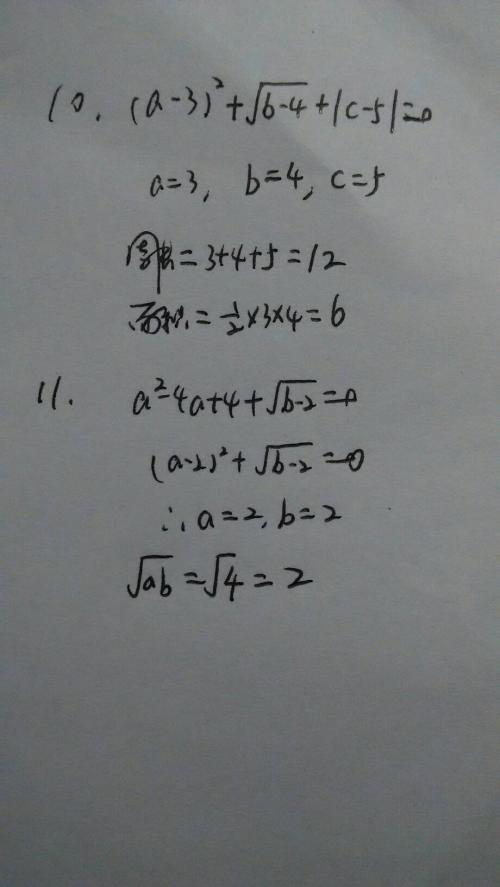 10. (a-3)²+√(b-4)+|c-5|=0
a=3, b=4, c=5
周长=3+4+5=12
面积=½×3×4=6
11. a²-4a+4+√(b-2)=0
(a-2)²+√(b-2)=0
∴a=2,b=2
√(ab)=√4=2